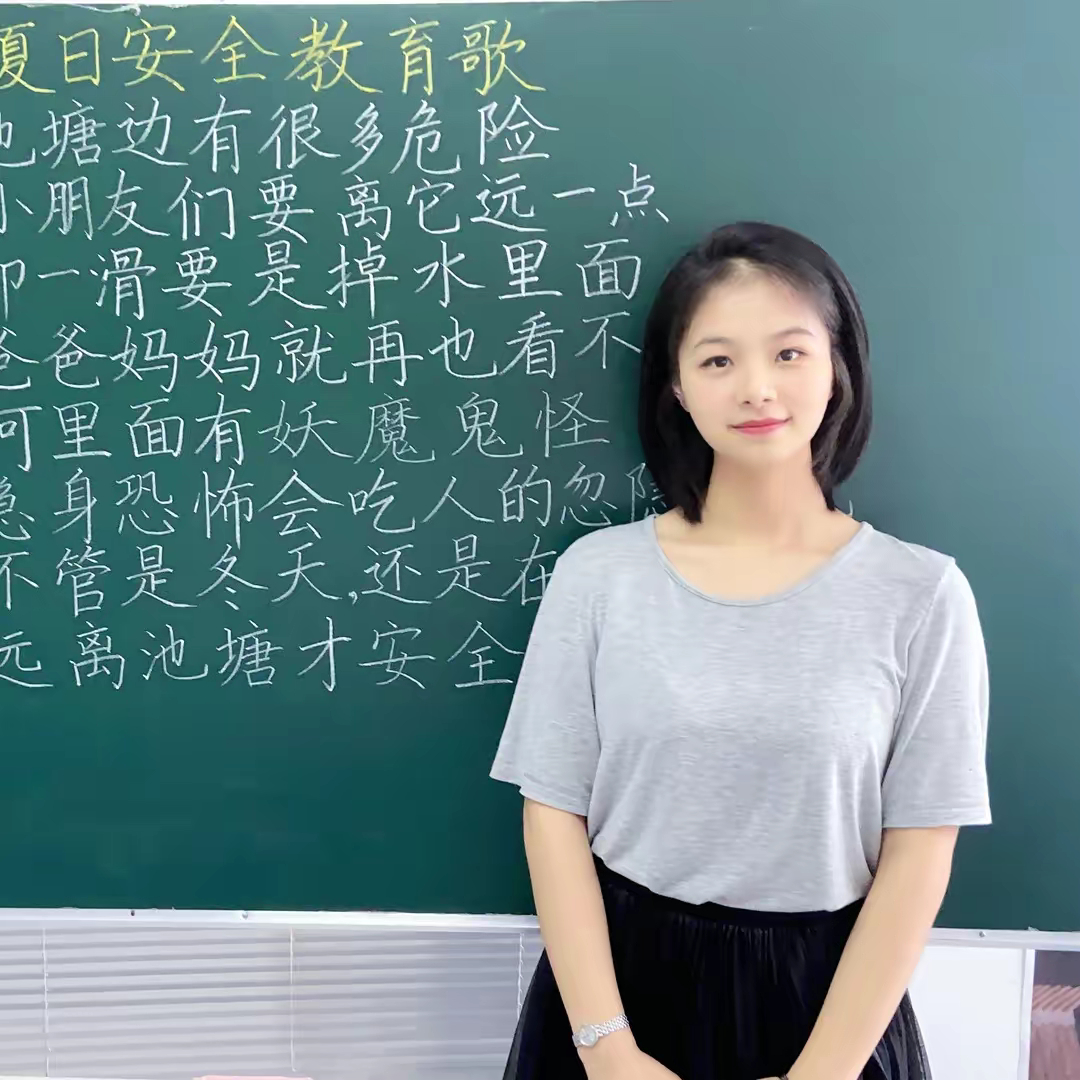 夏日安全教育歌
池塘边有很多危险
小朋友们要离它远一点
脚一滑要是掉水里面
爸爸妈妈就再也看不
河里面有妖魔鬼怪
隐身恐怖会吃人的忽隐
不管是冬天,还是在
远离池塘才安全